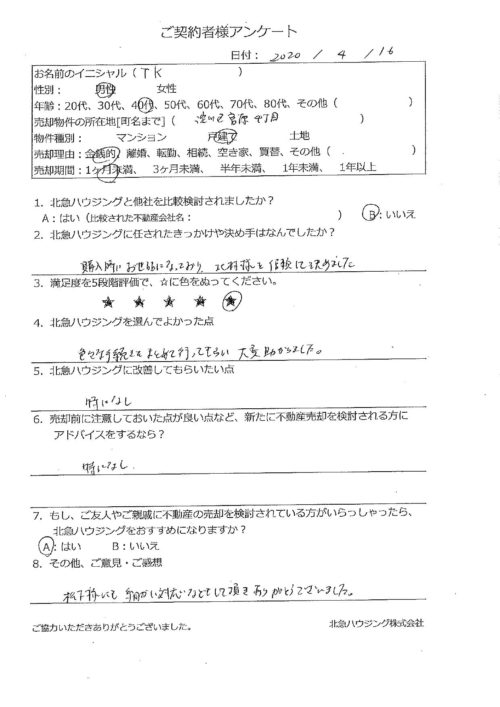 ご契約者様アンケート
日付： 2020 / 4 / 16
お名前のイニシャル（ TK ）
性別： 男性 女性
年齢：20代、30代、40代、50代、60代、70代、80代、その他（ ）
売却物件の所在地[町名まで]（ 淀川区宮原4丁目
物件種別： マンション 戸建て 土地
売却理由：金銭的、離婚、転勤、相続、空き家、買替、その他（ ）
売却期間：1ヶ月未満、 3ヶ月未満、 半年未満、 1年未満、 1年以上
1．北急ハウジングと他社を比較検討されましたか？
A：はい（比較された不動産会社名： ） B：いいえ
2．北急ハウジングに任されたきっかけや決め手はなんでしたか？
購入時にお世話になっており、北村様を信頼して決めました
3．満足度を5段階評価で、☆に色をぬってください。
★ ★ ★ ★ ★
4．北急ハウジングを選んでよかった点
色々な手続きをまとめて行ってもらい 大変助かりました。
5．北急ハウジングに改善してもらいたい点
特になし
6．売却前に注意しておいた点が良い点など、新たに不動産売却を検討される方に
アドバイスをするなら？
特になし
7．もし、ご友人やご親戚に不動産の売却を検討されている方がいらっしゃったら、
北急ハウジングをおすすめになりますか？
A：はい B：いいえ
8．その他、ご意見・ご感想
松下様にも 対応などをして頂きありがとうございました。
ご協力いただきありがとうございました。
北急ハウジング株式会社